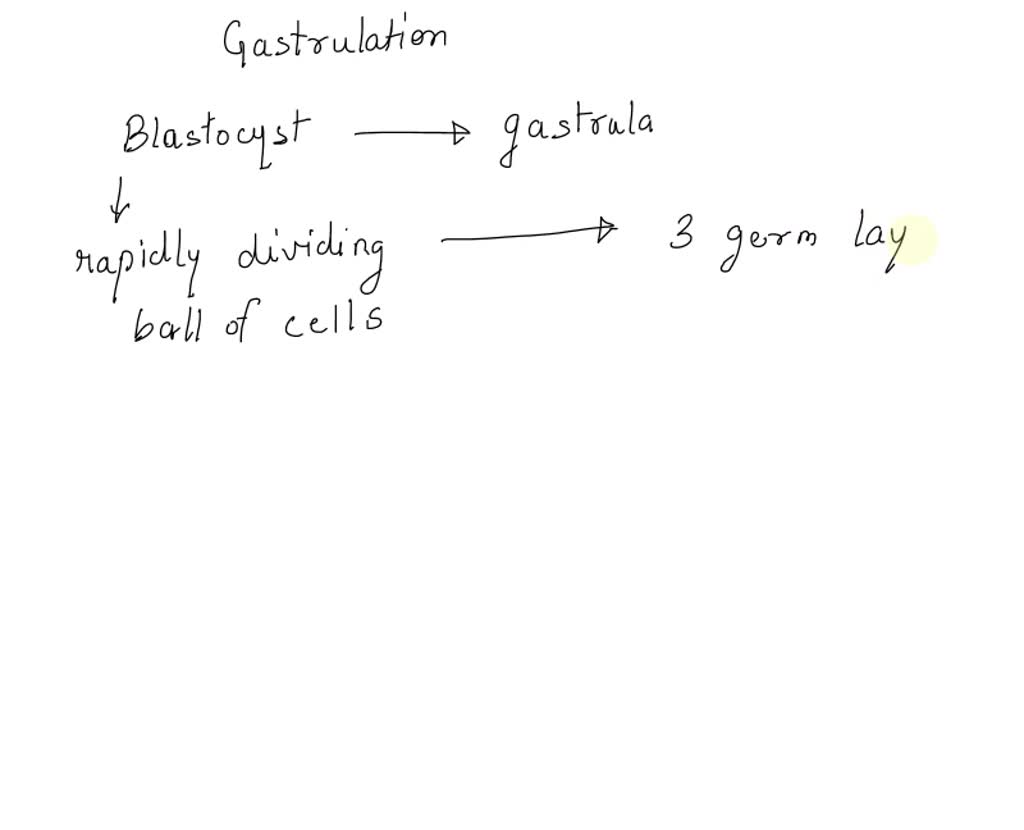 Gastrulation
Blastocyst → gastrula
↓
rapidly dividing → 3 germ lay
ball of cells